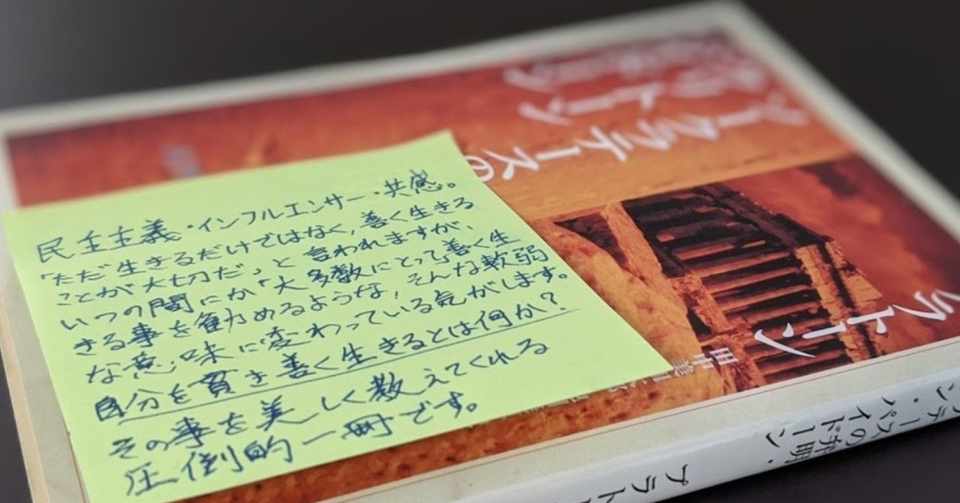 民主主義・インフルエンサー・共感。
「ただ生きるだけではなく、善く生きる
ことが大切だ」と言われますが、
いつの間にか「大多数にとって善く生
きる事を勧めるような、そんな軟弱
な意味に変わっている気がします。
自分を貫き善く生きるとは何か?
その事を美しく教えてくれる
圧倒的一冊です。
ソークラテースの
ラトーン
テースの弁明・
ン・パイドーン
プラト